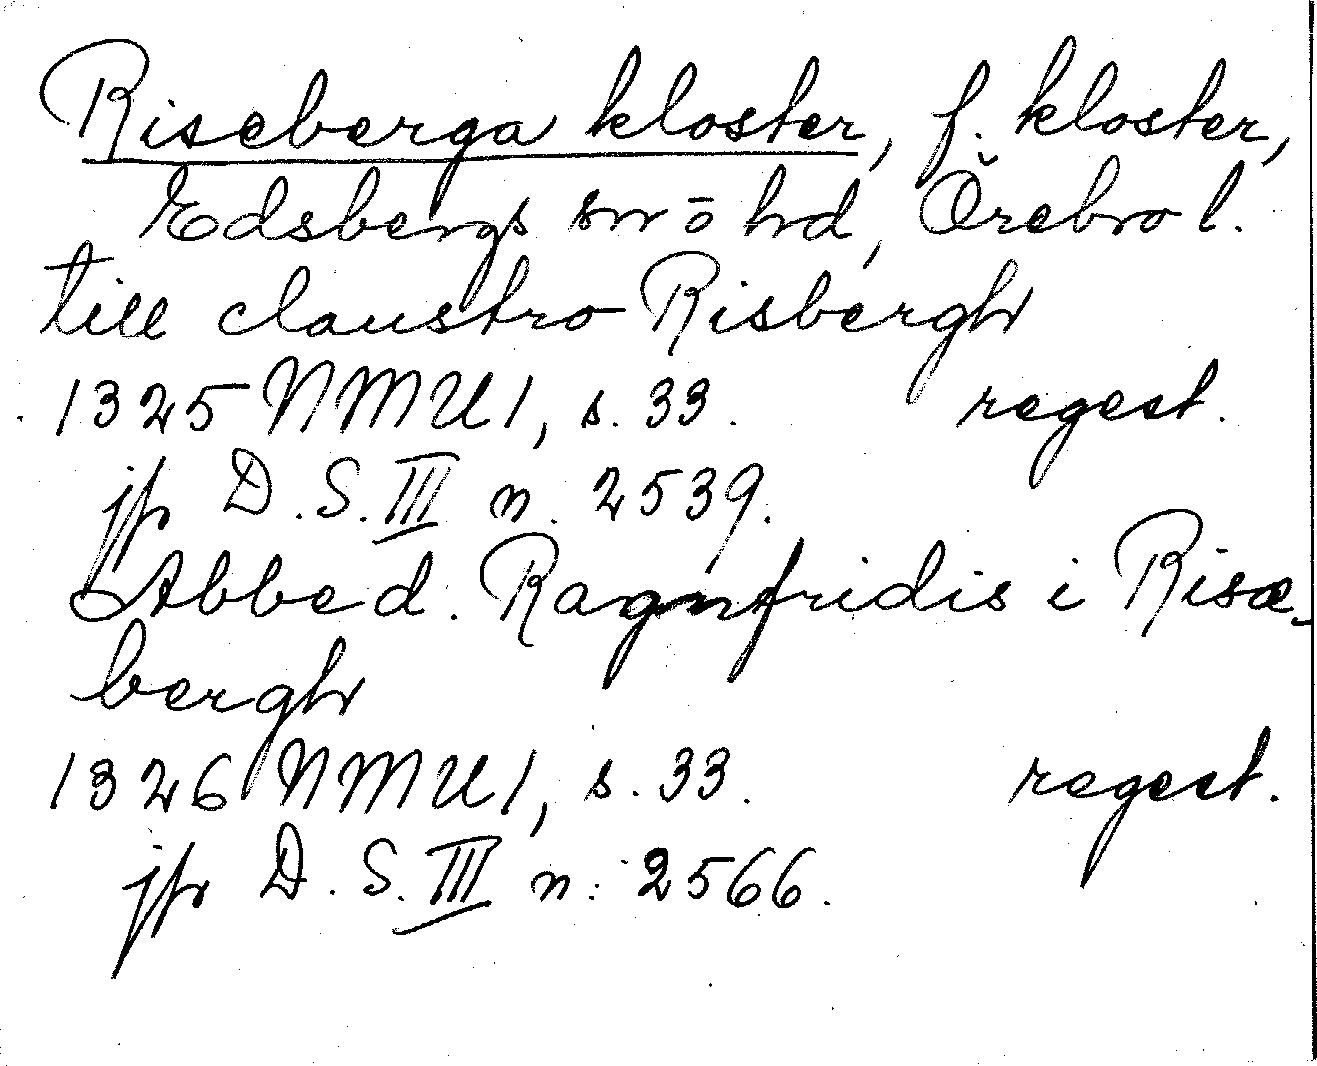 Riseberga kloster, f. kloster,
Edsbergs sn o hd, Örebro l.
till claustro Risbergh
1325 NMU 1, s. 33. regest.
jfr D.S. III n. 2539.
Abbed. Ragnfridis i Risæ-
bergh
1326 NMU 1, s. 33. regest.
jfr D.S. III n: 2566.